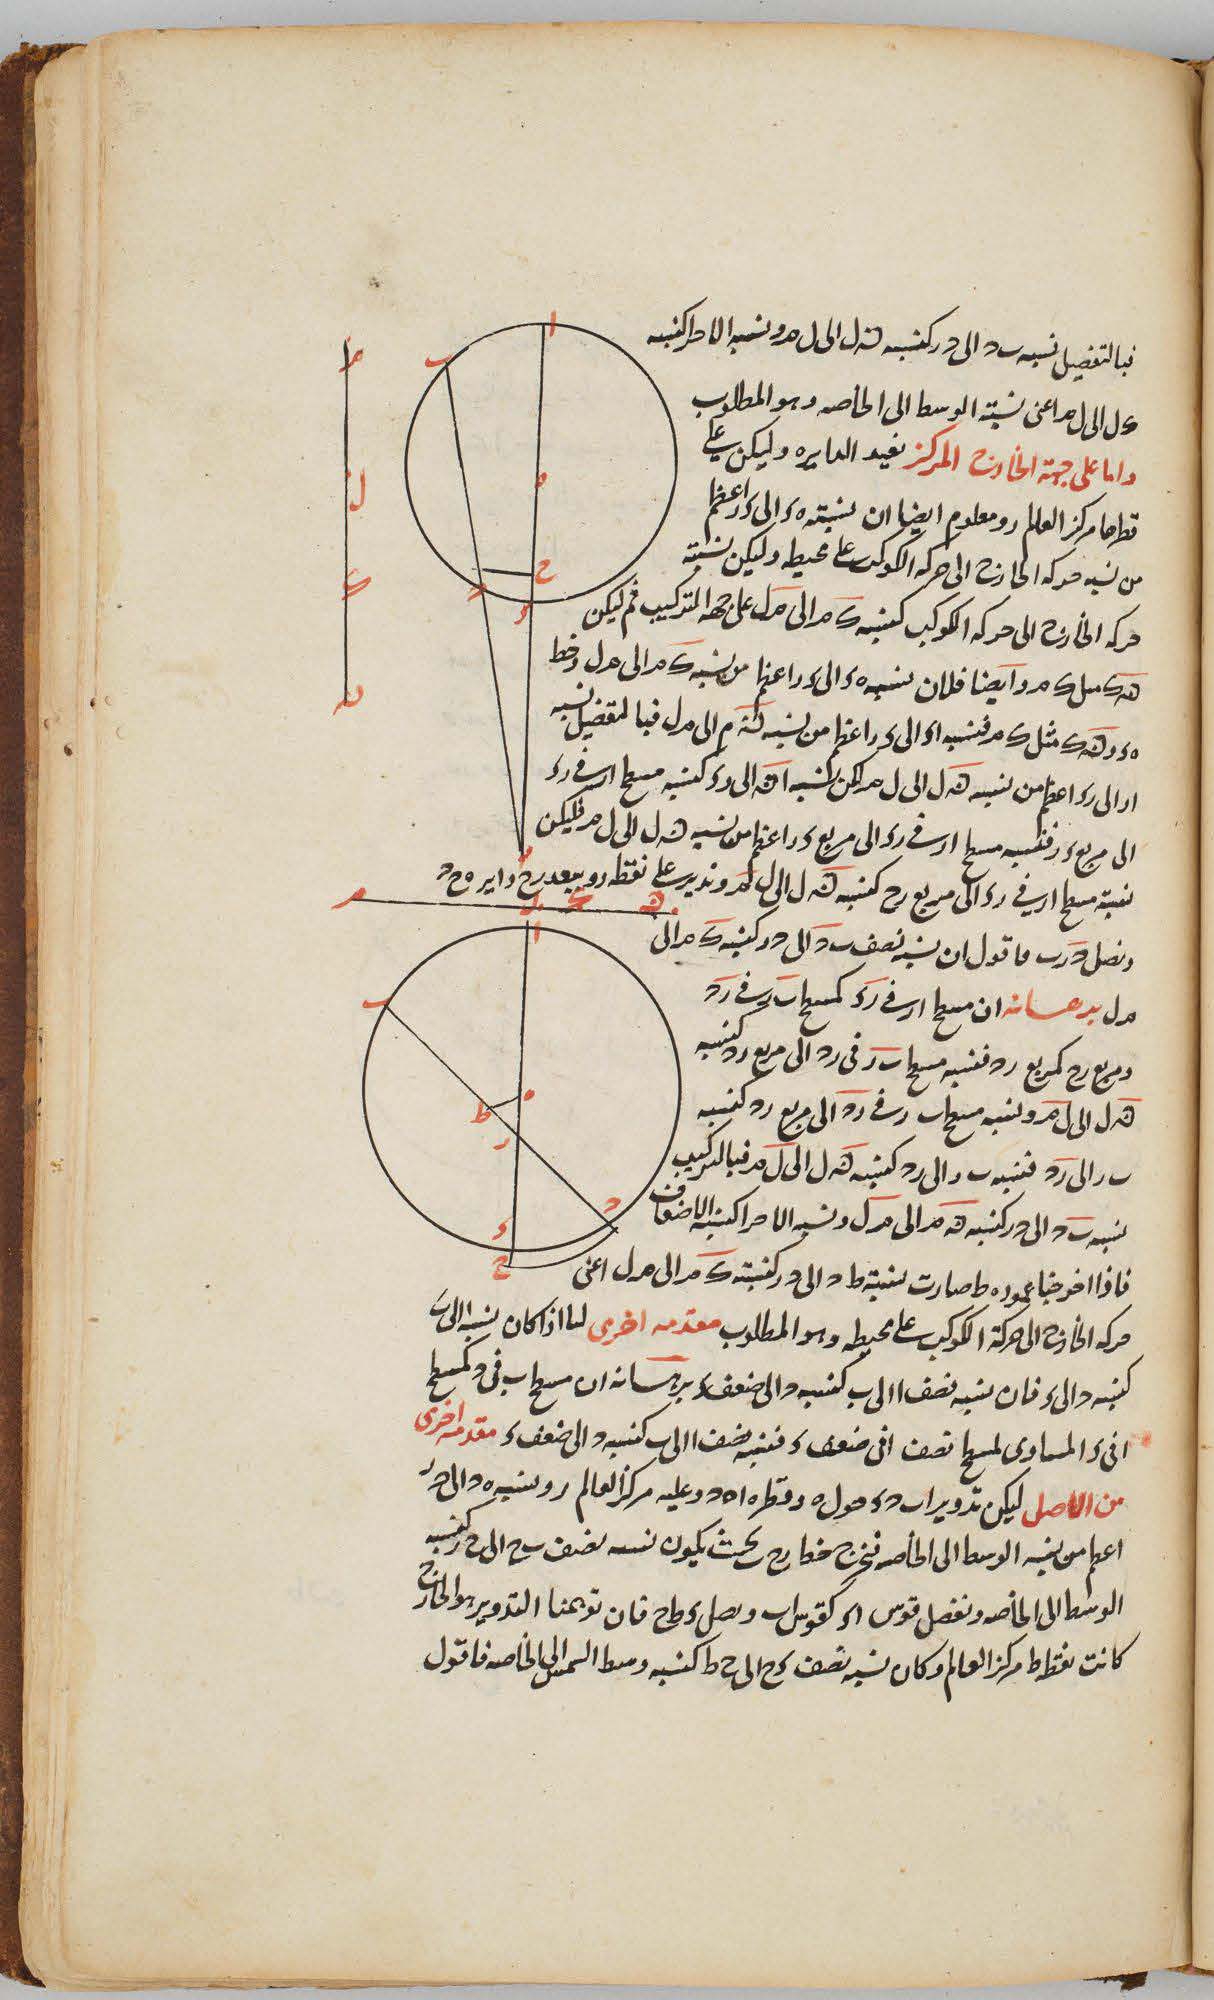 فبالتفصيل نسبه ب د الى د ر كنسبه نه ل الى ل م ونسبه الاجزا كنسبه
ك ل الى ل م اعنى نسبته الوسط الى الخاصه وهو المطلوب
واما على جهة الخارج المركز نعيد الدايره وليكن على
قطرها مركز العالم ر ومعلوم ايضا ان نسبته ه ء الى ء ر اعظم
من نسبه حركه الخارج الى حركه الكوكب على محيطه وليكن نسبته
حركه الخارج الى حركه الكوكب كنسبه ك م الى م ل على جهه التركيب ثم ليكن
نه ك مثل ك م وايضا فلان نسبه ه ء الى ء ر اعظم من نسبه ك م الى م ل وخط
ه ء و نه ك مثل ك م فنسبه ا ء الى ء ر اعظم من نسبه نه م الى م ل فبالتفضيل نسبه
ا ر الى ر ء اعظم من نسبه نه ل الى ل م لكن نسبه الى ء كنسبه مسطح ا ر فى ر ء
الى مربع ء ر فنسبه مسطح ا ر فى ر ء الى مربع ء ر اعظم من نسبه نه ل الى ل م فليكن
نسبة مسطح ا ر فى ر ء الى مربع ر ح كنسبه نه ل الى ل م وندير على نقطه ر وببعد ر ح دايره ح د
ونصل د ر ب فاقول ان نسبه نصف ب د الى د ر كنسبه ك م الى
م ل برهانه ان مسطح ا ر فى ر ء كمسطح ب ر فى ر د
ومربع ر ح كمربع ر د فنسبه مسطح ب ر فى ر د الى مربع ر د كنسبه
نه ل الى ل م ونسبه مسطح ب ر فى ر د الى مربع ر د كنسبه
ب ر الى ر د فنسبه ب ر الى ر د كنسبه نه ل الى ل م فبالتركيب
نسبه ب د الى د ر كنسبه نه م الى م ل ونسبه الاجزا كنسبه الاضعاف
فاذا اخرجنا عمود ه ط صارت نسبته ط د الى د ر كنسبته ك م الى م ل اعنى
حركه الخارج الى حركة الكوكب على محيطه وهو المطلوب مقدمه اخرى لنا اذا كان نسبه ا الى ب
كنسبه د الى ء فان نسبه نصف ا الى ب كنسبه د الى ضعف ء برهانه ان مسطح ب فى د كمسطح
ا فى ء المساوى لمسطح نصف ا فى ضعف ء فنسبه نصف ا الى ب كنسبه د الى ضعف ء مقدمه اخرى
من الاصل ليكن تدوير ا ب د ء حول ه وقطره ا ه د وعليه مركز العالم ر ونسبه ه د الى د ر
اعظم من نسبه الوسط الى الخاصه فنخرج خط ر ح ب بحيث يكون نسبه نصف ب ح الى ح ر كنسبه
الوسط الى الخاصه ونفصل قوس ا ء كقوس ا ب ونصل ء ط ح فان توهمنا التدوير هو الخارج
كانت نقطه ط مركز العالم وكان نسبه نصف ء ح الى ح ط كنسبه وسط الشمس الى الخاصه فاقول
ا
ب
ه
ح
د
ء
ر
م
ل
ك
نه
م
ل
ك
نه
ا
ب
ه
ط
ر
د
ء
ح